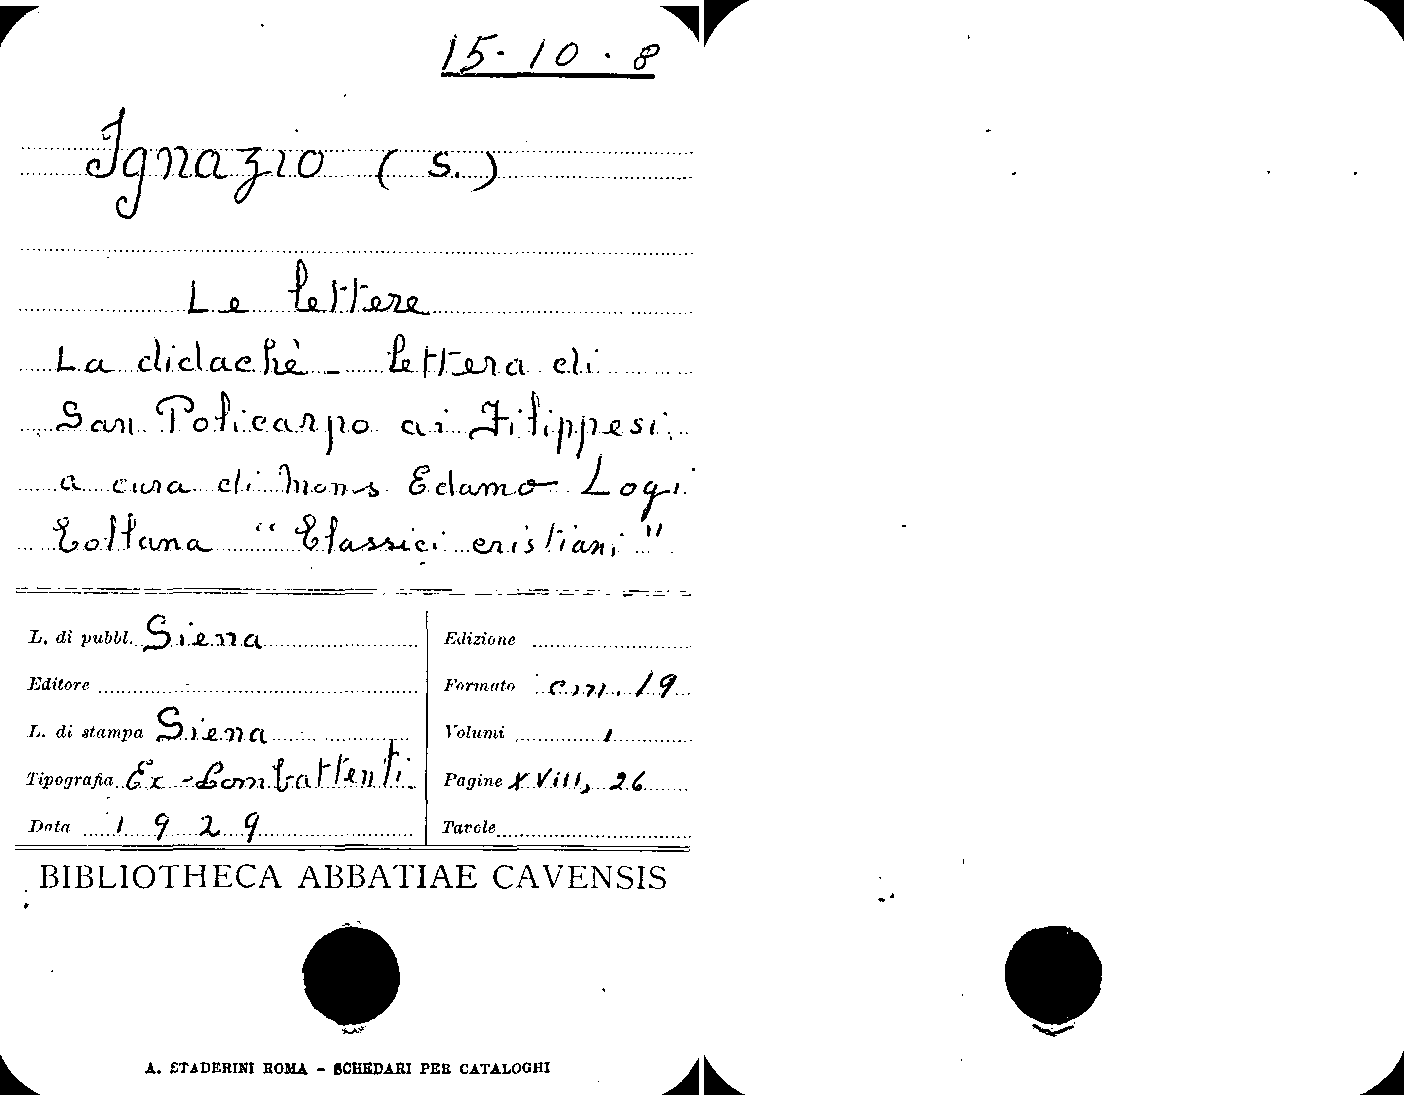 15-10.8
Ignazio (S.)
Le lettere
La didachè - lettera di
San Policarpo ai Filippesi
a cura di Mons Edamo Logi
Collana “Classici cristiani”
L. di pubbl. Siena
Editore
L. di stampa Siena
Tipografia Ex-Combattenti
Data 1929
Edizione
Formato cm. 19
Volumi 1
Pagine XVIII, 26
Tavole
BIBLIOTHECA ABBATIAE CAVENSIS
A. STADERINI ROMA - SCHEDARI PER CATALOGHI